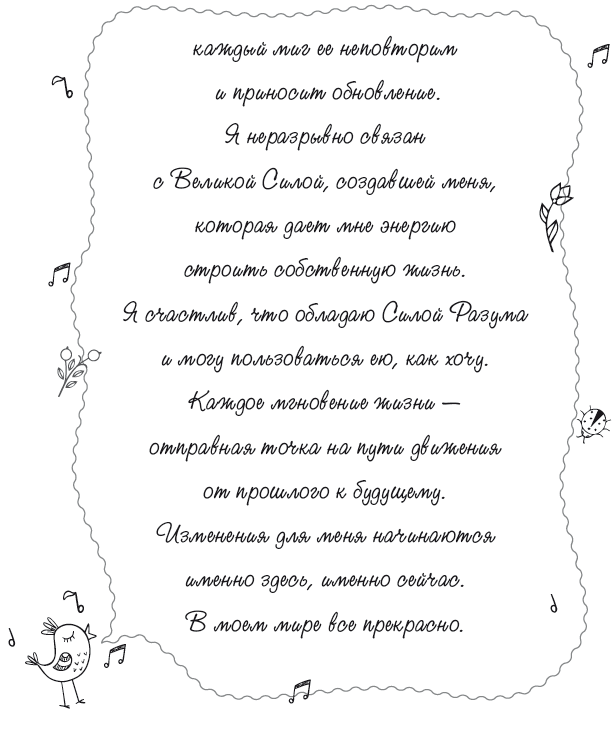 каждый миг ее неповторим
и приносит обновление.
Я неразрывно связан
с Великой Силой, создавшей меня,
которая дает мне энергию
строить собственную жизнь.
Я счастлив, что обладаю Силой Разума
и могу пользоваться ею, как хочу.
Каждое мгновение жизни —
отправная точка на пути движения
от прошлого к будущему.
Изменения для меня начинаются
именно здесь, именно сейчас.
В моем мире все прекрасно.